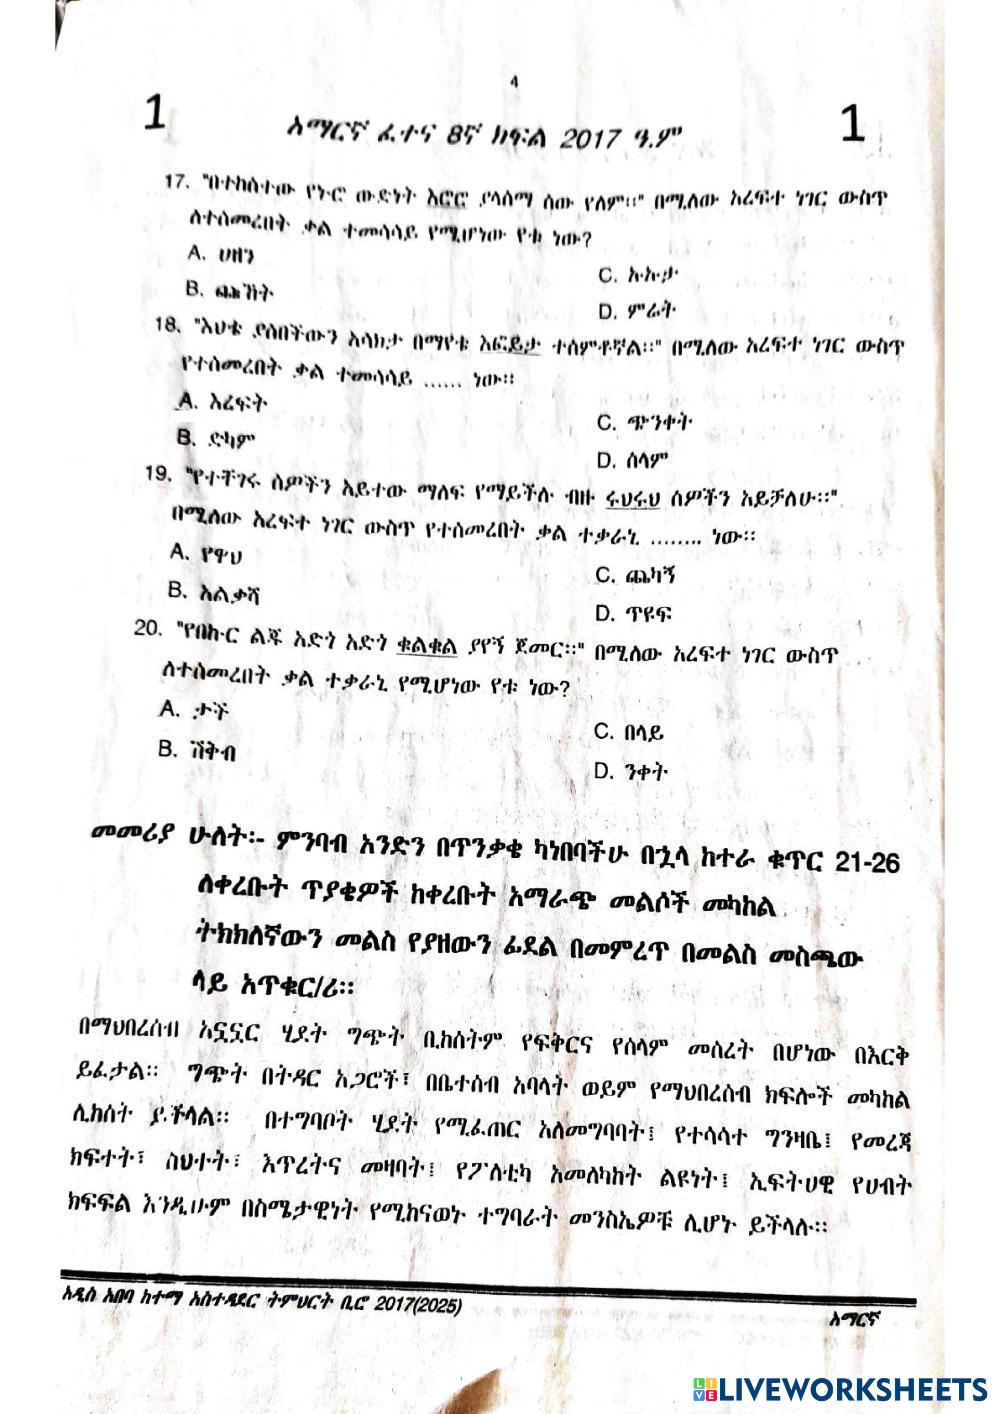 4
1 አማርኛ ፈተና 8ኛ ክፍል 2017 ዓ.ም 1
17. "በተከሰተው የኑሮ ውድነት እሮሮ ያላሰማ ሰው የለም።" በሚለው አረፍተ ነገር ውስጥ
ለተሰመረበት ቃል ተመሳሳይ የሚሆነው የቱ ነው?
A. ሀዘን
C. እኡኡታ
B. ጩኸት
D. ምሬት
18. "እህቴ ያሰበችውን እሳክታ በማየቴ እፎይታ ተሰምቶኛል።" በሚለው አረፍተ ነገር ውስጥ
የተሰመረበት ቃል ተመሳሳይ ...... ነው።
A. እረፍት
C. ጭንቀት
B. ድካም
D. ሰላም
19. "የተቸገሩ ሰዎችን አይተው ማለፍ የማይችሉ ብዙ ሩህሩህ ሰዎችን አይቻለሁ።"
በሚለው አረፍተ ነገር ውስጥ የተሰመረበት ቃል ተቃራኒ ........ ነው።
A. የዋህ
C. ጨካኝ
B. አልቃሻ
D. ጥዩፍ
20. "የበኩር ልጁ አድጎ አድጎ ቁልቁል ያየኝ ጀመር።" በሚለው አረፍተ ነገር ውስጥ
ለተሰመረበት ቃል ተቃራኒ የሚሆነው የቱ ነው?
A. ታች
C. በላይ
B. ሽቅብ
D. ንቀት
መመሪያ ሁለት፡- ምንባብ አንድን በጥንቃቄ ካነበባችሁ በኋላ ከተራ ቁጥር 21-26
ለቀረቡት ጥያቄዎች ከቀረቡት አማራጭ መልሶች መካከል
ትክክለኛውን መልስ የያዘውን ፊደል በመምረጥ በመልስ መስጫው
ላይ አጥቁር/ሪ።
በማህበረሰብ አኗኗር ሂደት ግጭት ቢከሰትም የፍቅርና የሰላም መሰረት በሆነው በእርቅ
ይፈታል። ግጭት በትዳር አጋሮች፣ በቤተሰብ አባላት ወይም የማህበረሰብ ክፍሎች መካከል
ሊከሰት ይችላል። በተግባቦት ሂደት የሚፈጠር አለመግባባት፤ የተሳሳተ ግንዛቤ፤ የመረጃ
ክፍተት፣ ስህተት፣ እጥረትና መዛባት፤ የፖለቲካ አመለካከት ልዩነት፤ ኢፍትሀዊ የሀብት
ክፍፍል እንዲሁም በስሜታዊነት የሚከናወኑ ተግባራት መንስኤዎቹ ሊሆኑ ይችላሉ።
አዲስ አበባ ከተማ አስተዳደር ትምህርት ቢሮ 2017(2025)
አማርኛ
LIVEWORKSHEETS